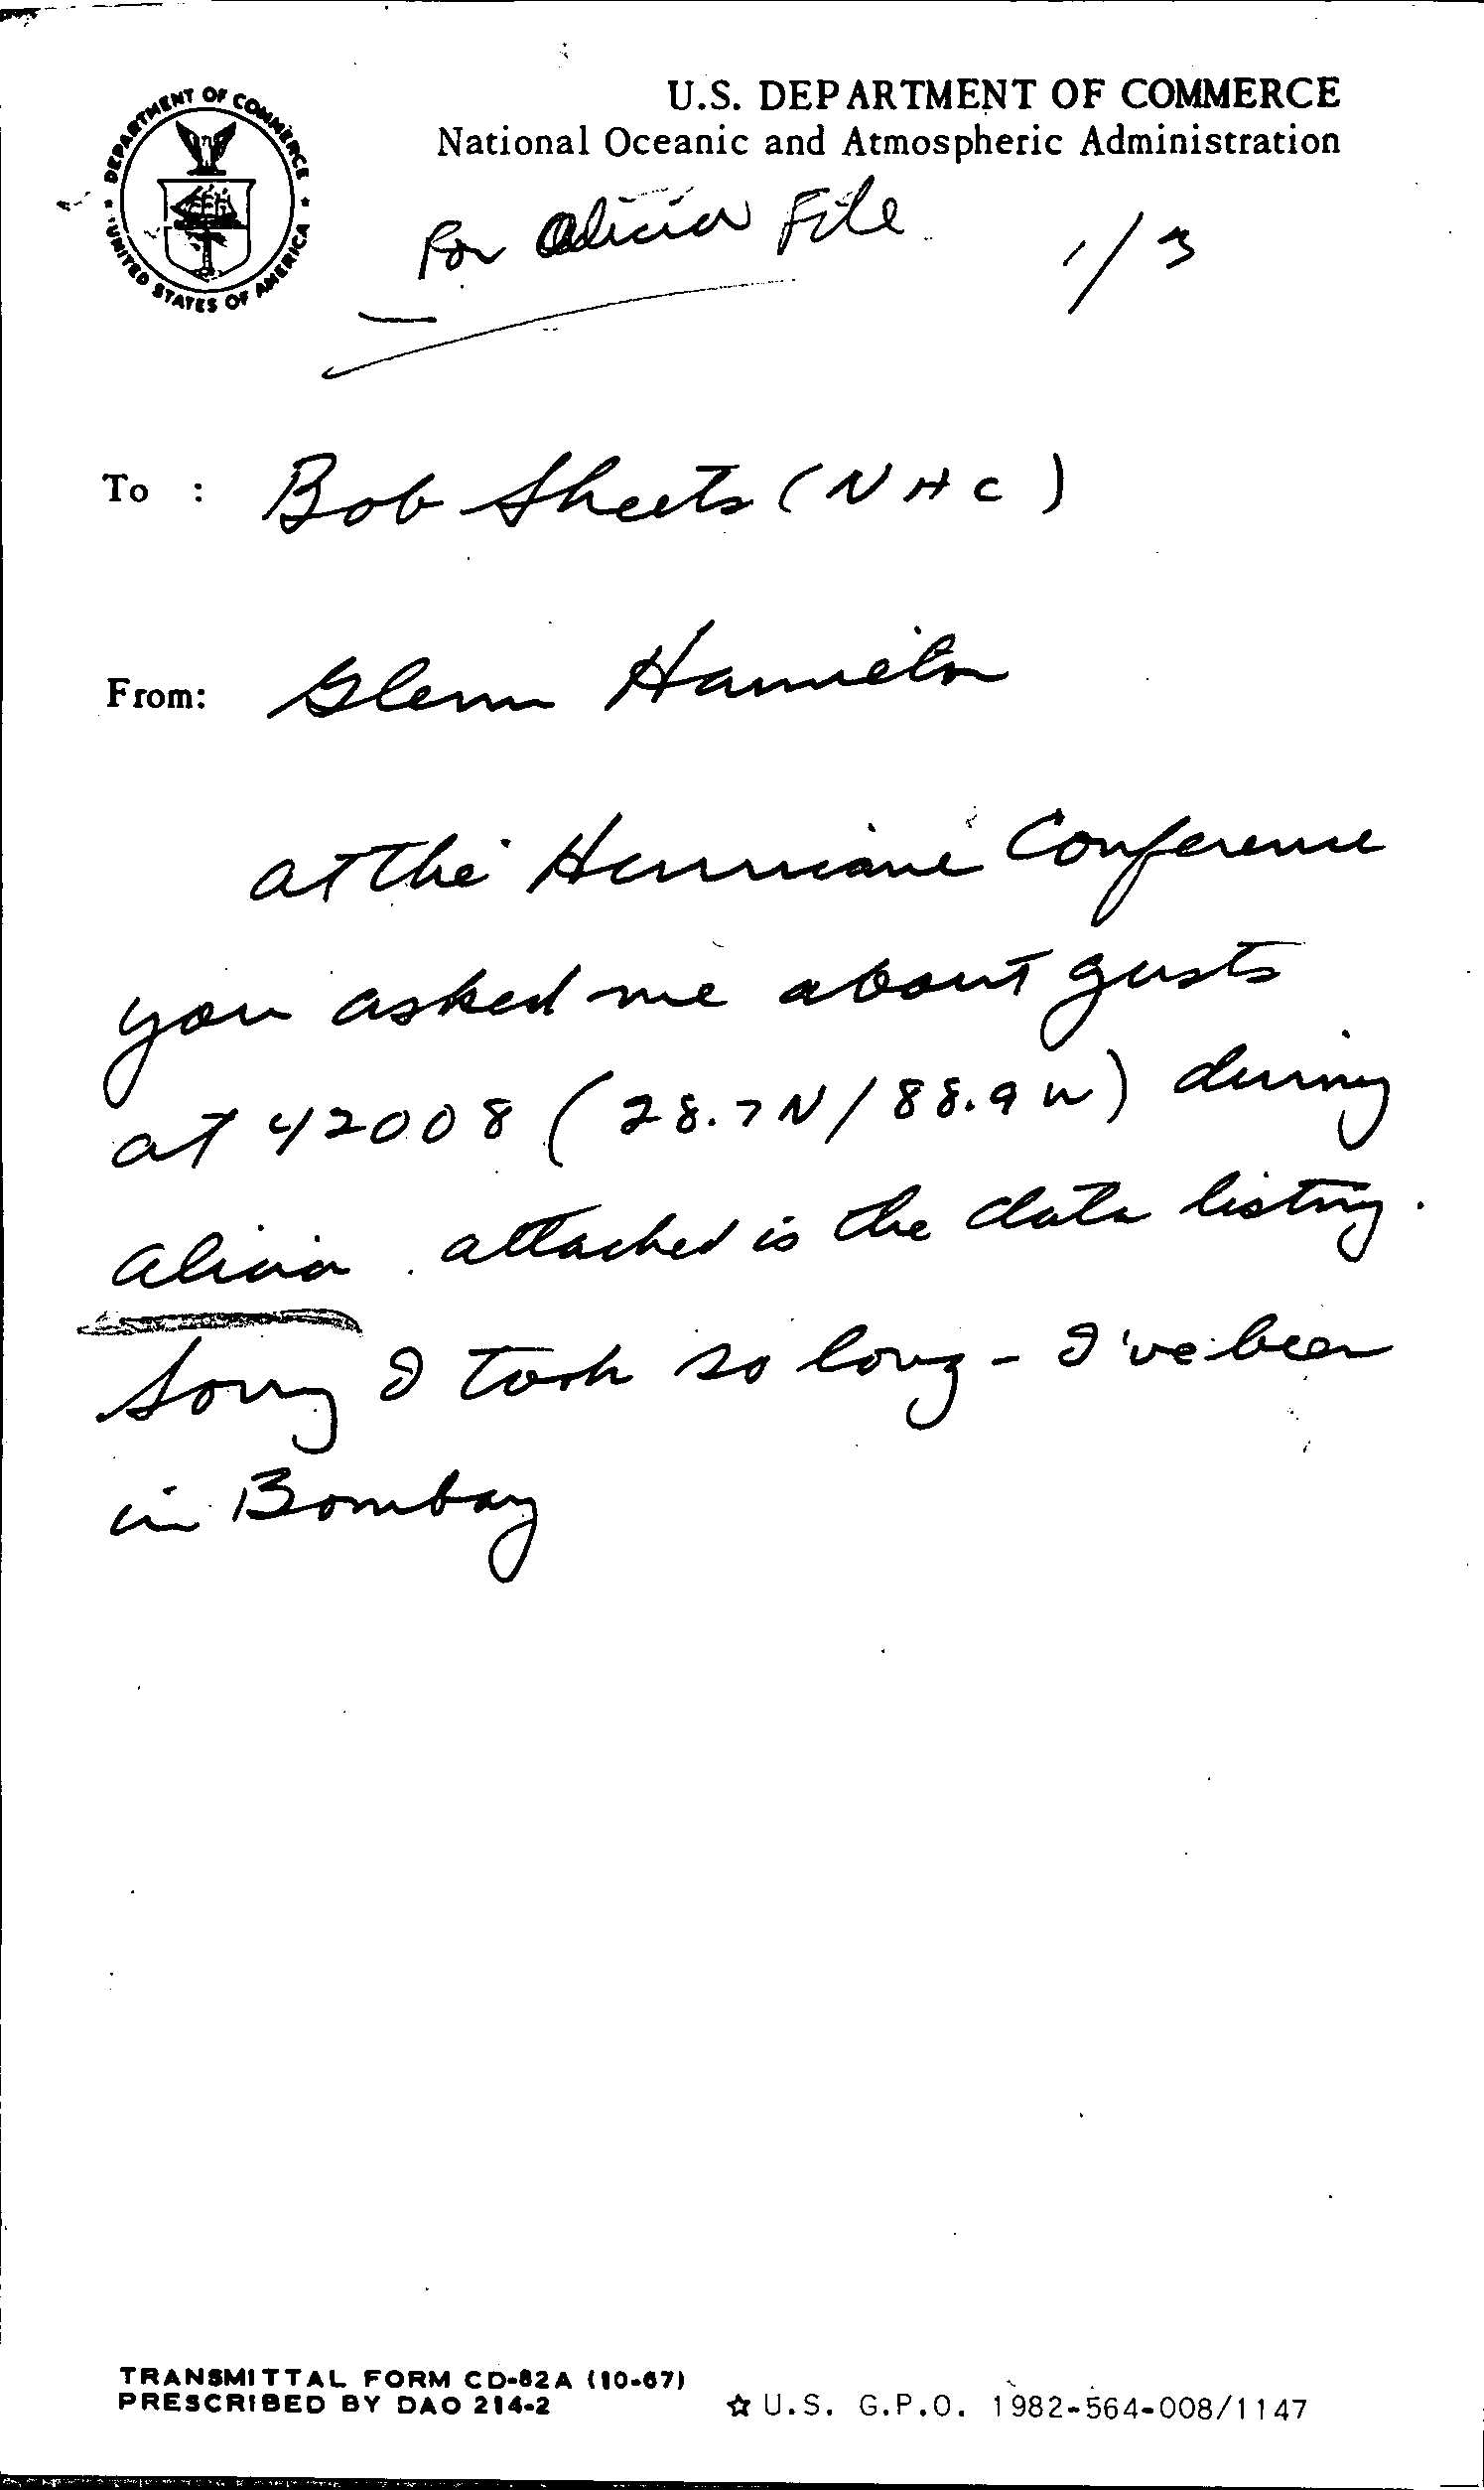 U.S. DEPARTMENT OF COMMERCE
National Oceanic and Atmospheric Administration
DEPARTMENT OF COMMERCE
UNITED STATES OF AMERICA
For Alicia File
1/3
To : Bob Sheets (NHC)
From: Glenn Hamilton
at the Hurricane Conference
you asked me about gusts
at 42008 (28.7N/88.9W) during
alicia. attached is the data listing.
Sorry I took so long - I've been
in Bombay
TRANSMITTAL FORM CD-82A (10-67)
PRESCRIBED BY DAO 214-2
☆ U.S. G.P.O. 1982-564-008/1147